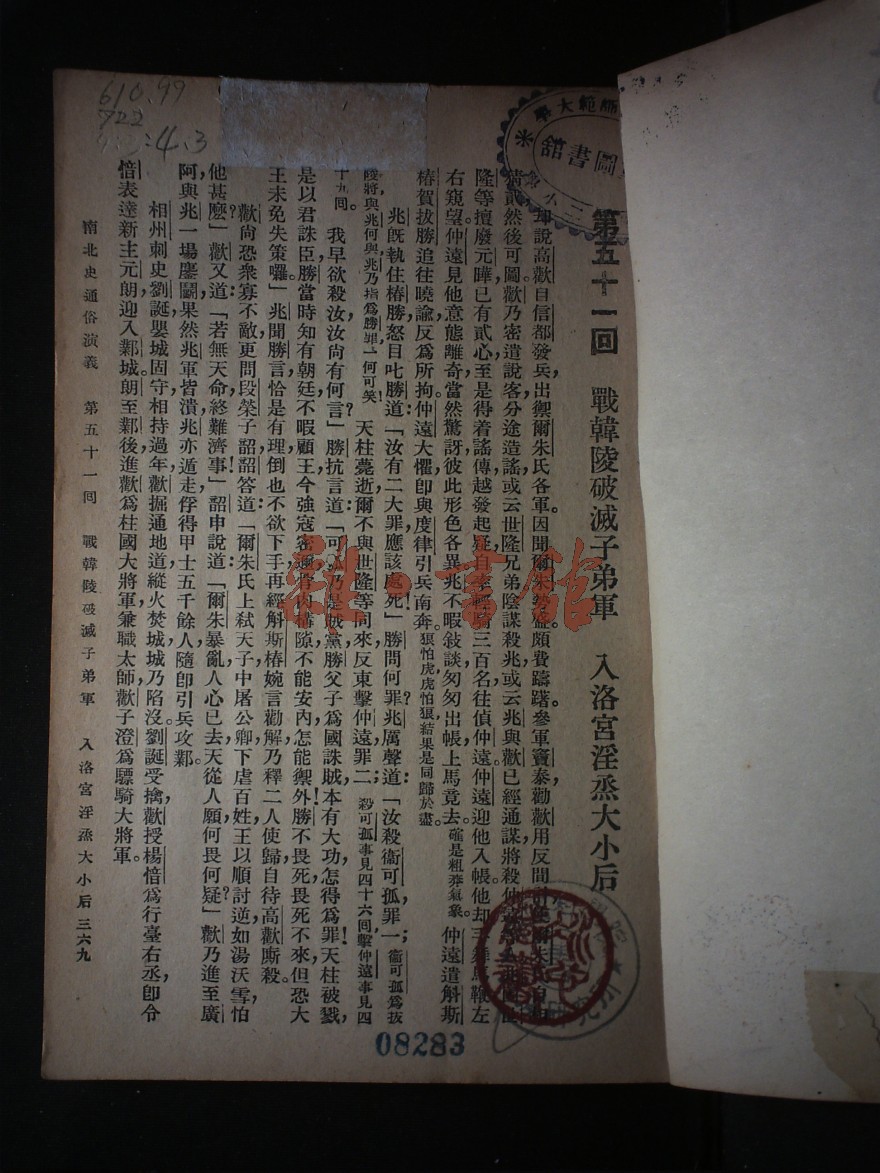 610.99
722
:4.3
師範大學
圖書館
第五十一回　戰韓陵破滅子弟軍　入洛宮淫烝大小后
却說高歡自信都發兵，出禦爾朱氏各軍。因聞爾朱勢盛，頗費躊躇。參軍竇泰勸歡用反間計，使爾朱氏自相
猜貳，然後可圖。歡乃密遣說客，分途造謠，或云世隆兄弟陰謀殺兆，或云兆與歡已經通謀，將殺仲遠
隆等擅廢元曄，已有貳心，至是得着謠傳，越發起疑，自率輕騎三百名，往偵仲遠。仲遠迎他入帳，他却手舞馬鞭，左
右窺望。仲遠見他意態離奇，當然驚訝，彼此形色各異。兆不暇敍談，匆匆出帳，上馬竟去。確是粗莽氣象。仲遠遣斛斯
椿賀拔勝追往曉諭，反爲所拘。仲遠大懼，卽與度律引兵南奔。狼怕虎，虎怕狼，結果是同歸於盡。
兆旣執住椿勝，怒目叱勝道：「汝有二大罪，應該處死！」勝問何罪？兆厲聲道：「汝殺衞可孤，罪一；衞可孤爲拔
陵將，與兆何與？兆乃指爲勝罪一，何可笑！天柱薨逝，爾不與世隆等同來，反東擊仲遠，罪二；殺可孤事見四十六回，擊仲遠事見四
十九回。我早欲殺汝，汝尚有何言？」勝抗言道：「可孤乃是賊黨，勝父子爲國誅賊，本有大功，怎得爲罪！天柱被戮，
是以君誅臣，勝當時知有朝廷，不暇顧王。今強寇密邇，骨肉構隙，不能安內，怎能禦外！勝不畏死，畏死不來，但恐大
王未免失策囉。」兆聞勝言，恰是有理，倒也不欲下手；再經斛斯椿婉言勸解，乃釋二人使歸，自待高歡廝殺。
歡尙恐衆寡不敵，更問段榮子韶，韶答道：「爾朱氏上弒天子，中屠公卿，下虐百姓，王以順討逆，如湯沃雪，怕
他甚麼？」歡又道：「若無天命，終難濟事！」韶申說道：「爾朱暴亂，人心已去，天從人願，何畏何疑？」歡乃進至廣
阿，與兆一場鏖鬭，果然兆軍皆潰，兆亦遁走，俘得甲士五千餘人，隨卽引兵攻鄴。
相州刺史劉誕，嬰城固守，相持過年，歡掘通地道，縱火焚城，城乃陷沒。劉誕受擒，歡授楊愔爲行臺右丞，卽令
愔表達新主元朗，迎入鄴城。朗至鄴後，進歡爲柱國大將軍，兼職太師，歡子澄爲驃騎大將軍。
南北史通俗演義　第五十一回　戰韓陵破滅子弟軍　入洛宮淫烝大小后　三六九
雜·書館
08283